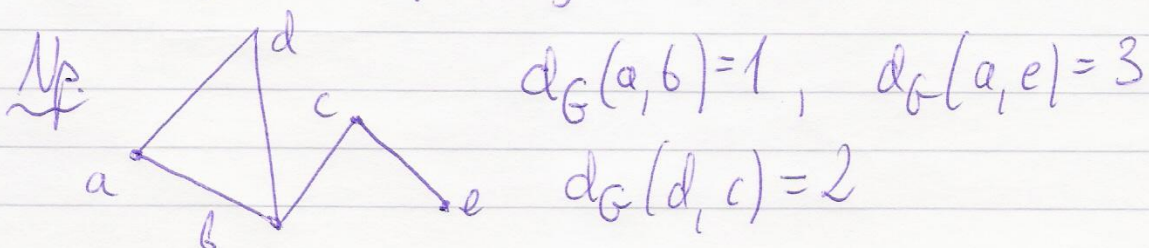 Np.
d
c
a
b
e
d_G(a,b)=1, d_G(a,e)=3
d_G(d,c)=2